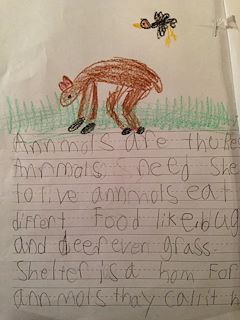 Annmals are
Annmals need She
to live annmals eat
diffrent Food like bug
and deer even grass.
Shelter is a hom For
annmals thay call it h